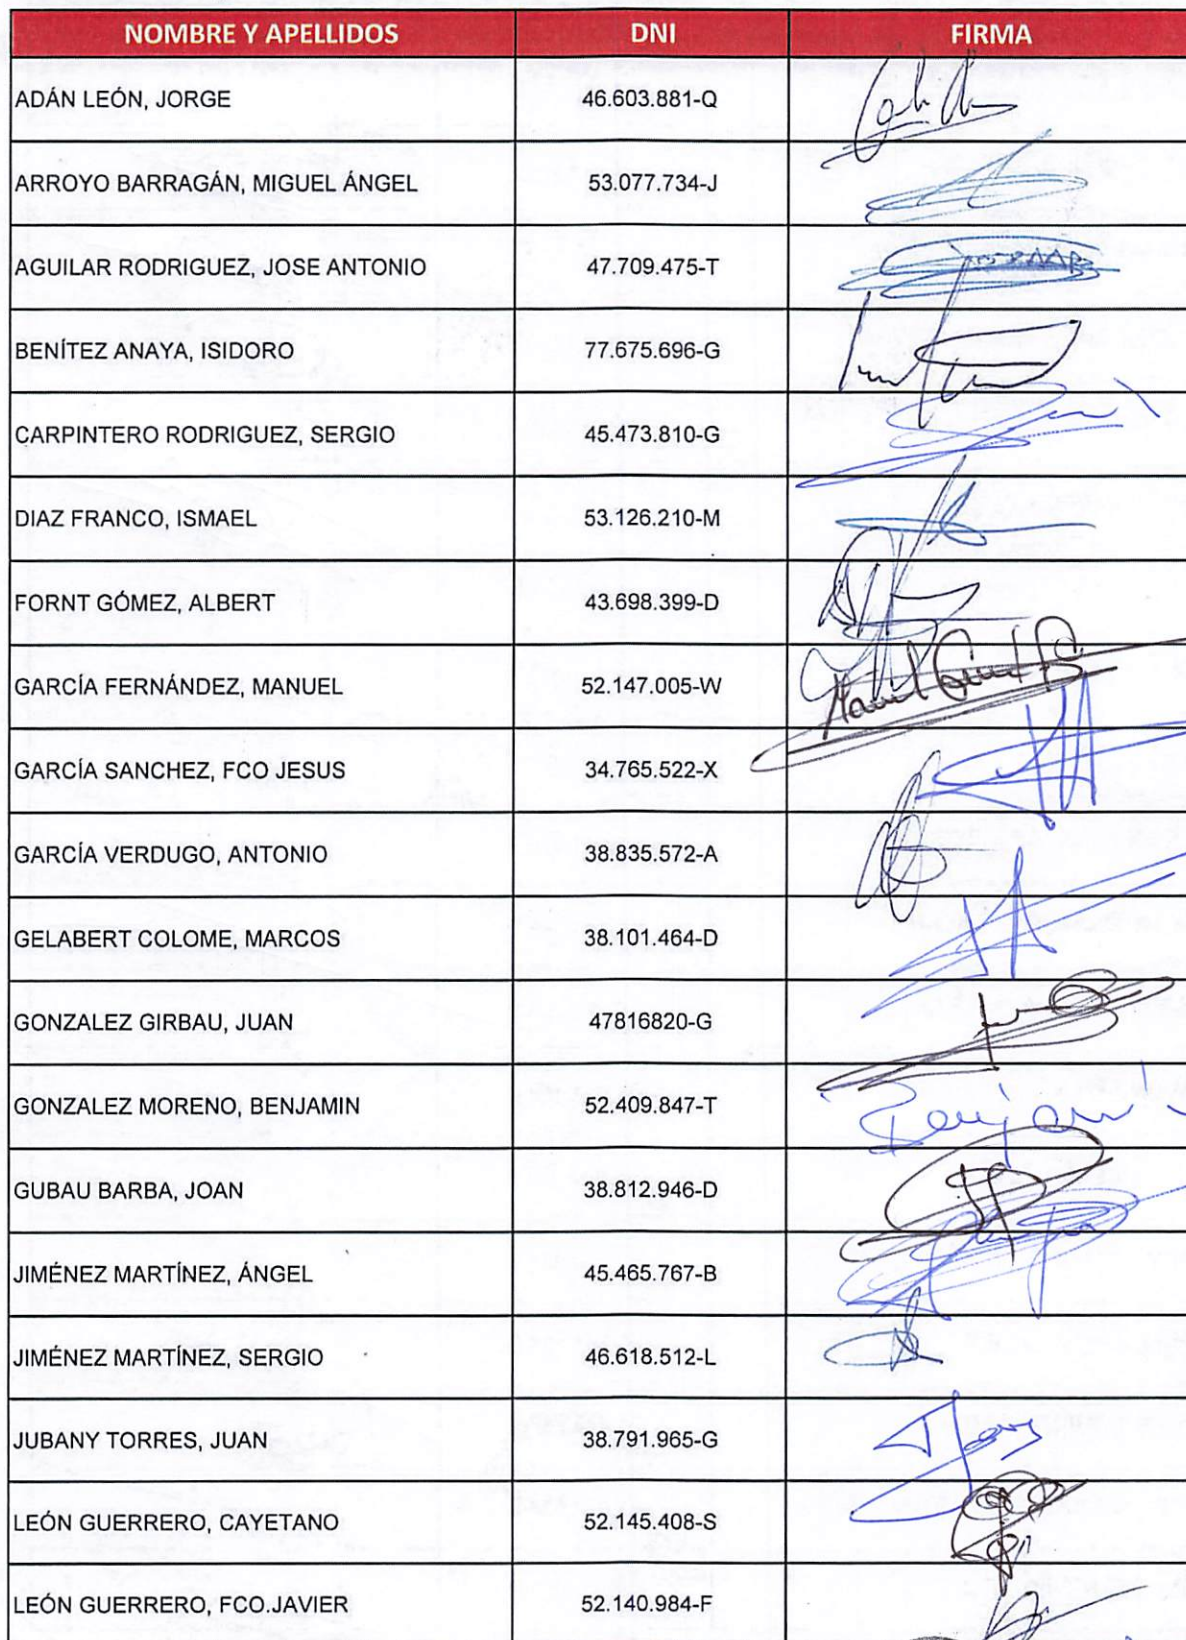 NOMBRE Y APELLIDOS DNI FIRMA
ADÁN LEÓN, JORGE 46.603.881-Q
ARROYO BARRAGÁN, MIGUEL ÁNGEL 53.077.734-J
AGUILAR RODRIGUEZ, JOSE ANTONIO 47.709.475-T
BENÍTEZ ANAYA, ISIDORO 77.675.696-G
CARPINTERO RODRIGUEZ, SERGIO 45.473.810-G
DIAZ FRANCO, ISMAEL 53.126.210-M
FORNT GÓMEZ, ALBERT 43.698.399-D
GARCÍA FERNÁNDEZ, MANUEL 52.147.005-W Manuel
GARCÍA SANCHEZ, FCO JESUS 34.765.522-X
GARCÍA VERDUGO, ANTONIO 38.835.572-A
GELABERT COLOME, MARCOS 38.101.464-D
GONZALEZ GIRBAU, JUAN 47816820-G
GONZALEZ MORENO, BENJAMIN 52.409.847-T Benjamin
GUBAU BARBA, JOAN 38.812.946-D
JIMÉNEZ MARTÍNEZ, ÁNGEL 45.465.767-B
JIMÉNEZ MARTÍNEZ, SERGIO 46.618.512-L
JUBANY TORRES, JUAN 38.791.965-G
LEÓN GUERRERO, CAYETANO 52.145.408-S
LEÓN GUERRERO, FCO.JAVIER 52.140.984-F